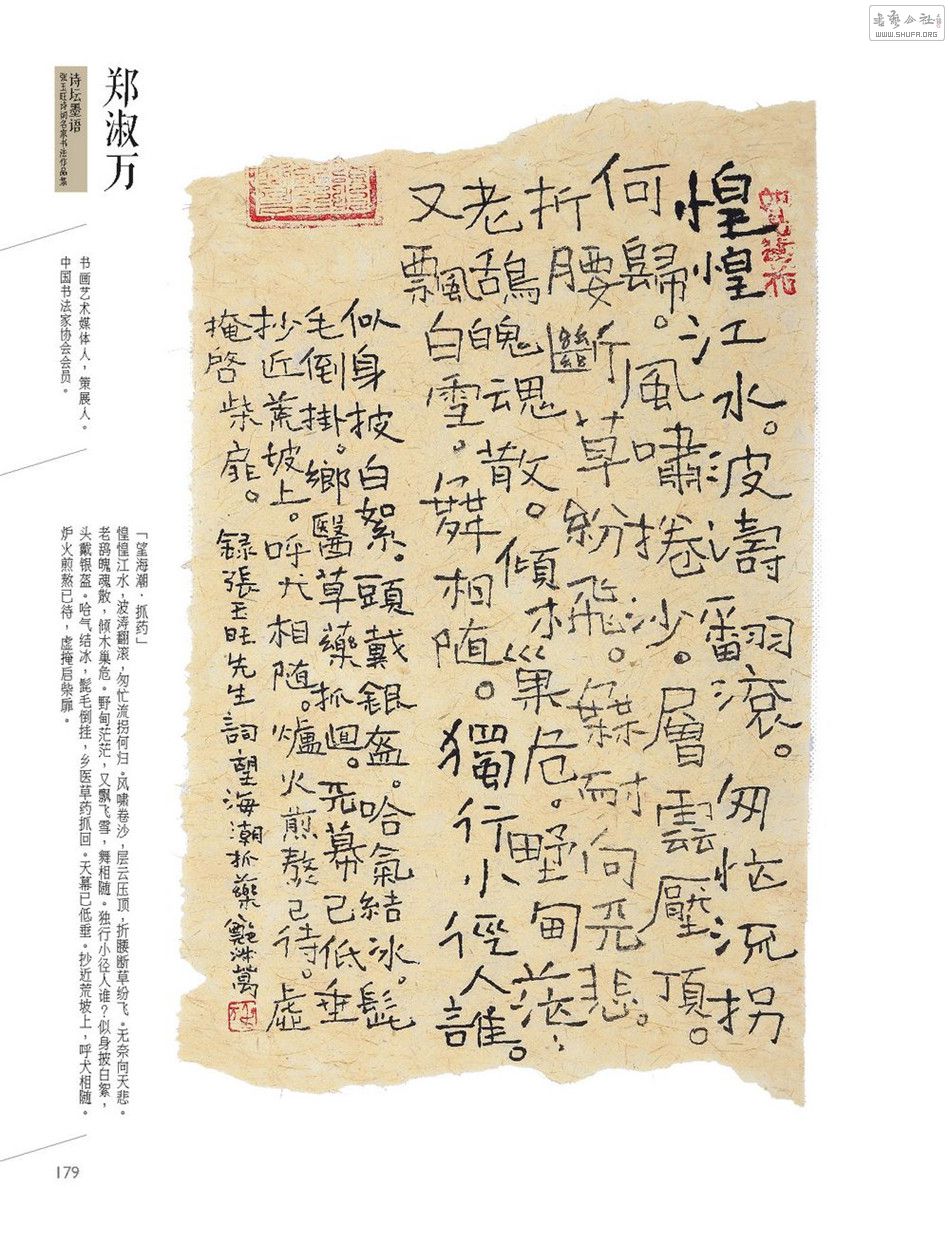 郑淑万
诗坛墨语
张玉旺诗词名家书法作品集
书画艺术媒体人，策展人。
中国书法家协会会员。
「望海潮·抓药」
惶惶江水，波涛翻滚，匆忙流拐何归。风啸卷沙，层云压顶，折腰断草纷飞。无奈向天悲。
老鸹魄魂散，倾木巢危。野甸茫茫，又飘飞雪，舞相随。独行小径人谁？似身披白絮，
头戴银盔。哈气结冰，髭毛倒挂，乡医草药抓回。天幕已低垂。抄近荒坡上，呼犬相随。
炉火煎熬已待，虚掩启柴扉。
179
惶惶江水。波濤翻滾。匆忙流拐
何歸。風嘯捲沙。層雲壓頂。
折腰斷草紛飛。無耐向天悲。
老鴰魄魂散。傾木巢危。野甸茫ミ
又飄白雪。舞相随。獨行小徑人誰。
似身披白絮。頭戴銀盔。哈氣結冰。髭
毛倒掛。鄉醫草藥抓回。天幕已低垂
抄近荒坡上。呼犬相随。爐火煎熬已待。虛
掩啓柴扉。
錄張玉旺先生詞望海潮抓藥鄭淑萬
WWW.SHUFA.ORG